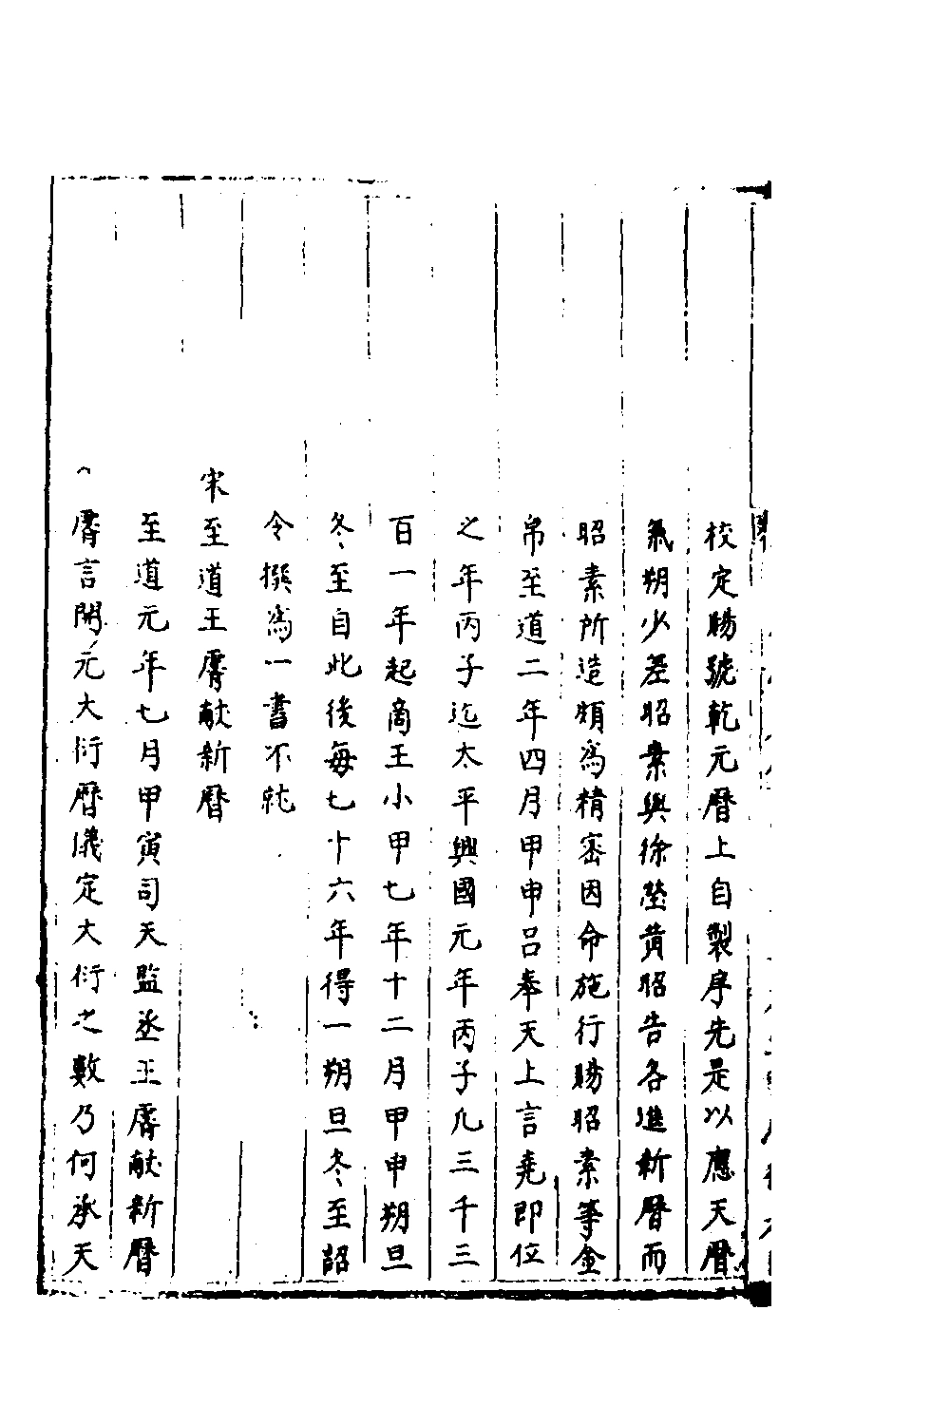 校定賜號乾元曆上自製序先是以應天曆
氣朔少差昭素與徐瑩黄昭吉各進新曆而
昭素所造頗為精密因命施行賜昭素等金
帛至道二年四月甲申吕奉天上言堯即位
之年丙子迄太平興國元年丙子凡三千三
百一年起商王小甲七年十二月甲申朔旦
冬至自此後每七十六年得一朔旦冬至詔
令撰為一書不就
宋至道王睿献新曆
至道元年七月甲寅司天監丞王睿献新曆
睿言開元大衍曆議定大衍之數乃何承天